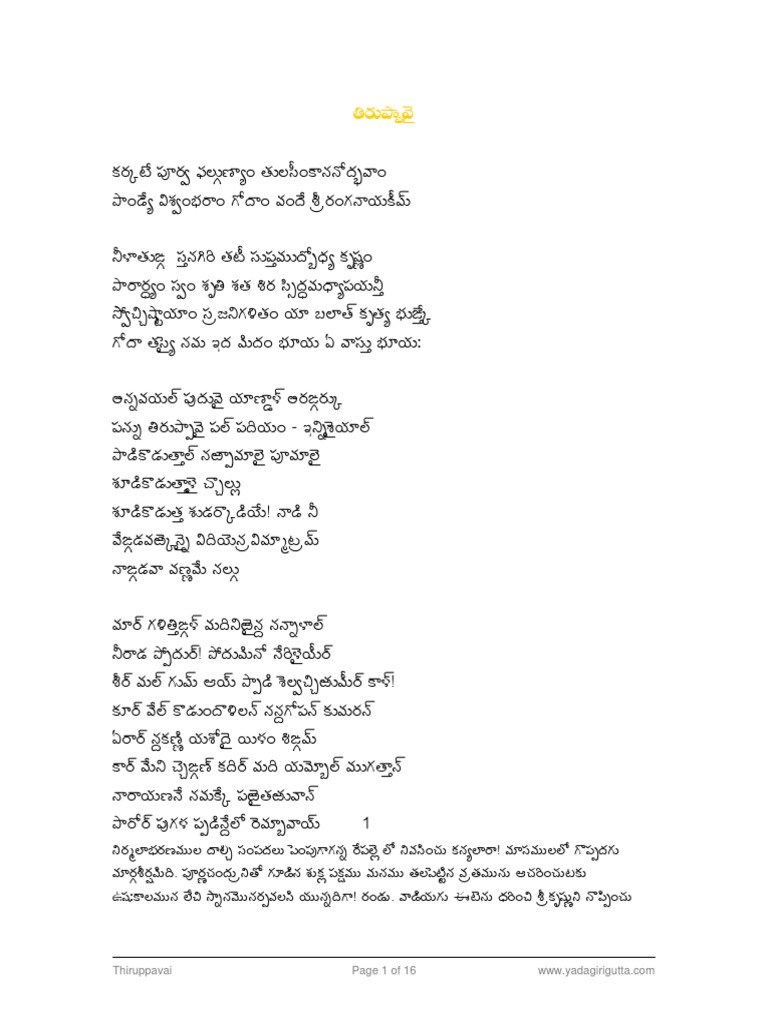 తిరుప్పావై
కర్కటే పూర్వ ఫల్గుణ్యాం తులసీంకాననోద్భవాం
పాండ్యే విశ్వంభరాం గోదాం వందే శ్రీరంగనాయకీమ్
నీళాతుఙ్గ స్తనగిరి తటీ సుప్తముద్బోధ్య కృష్ణం
పారార్థ్యం స్వం శృతి శత శిర స్సిద్ధమధ్యాపయన్తీ
స్వోచ్చిష్టాయాం స్రజనిగళితం యా బలాత్ కృత్య భుఙ్త్కే
గోదా తస్యై నమ ఇద మిదం భూయ ఏ వాస్తు భూయ:
అన్నవయల్ పుదువై యాణ్డాళ్ అరఙ్గర్కు
పన్ను తిరుప్పావై పల్ పదియం - ఇన్నిశైయాల్
పాడికొడుత్తాల్ నఱ్పామాలై పూమాలై
శూడికొడుత్తాళై చ్చొల్లు
శూడికొడుత్త శుడర్కొడియే! నాడి నీ
వేఙ్గడవఱ్కెన్నై విదియెన్రవిమ్మాట్రమ్
నాఙ్గడవా వణ్ణమే నల్గు
మార్ గళిత్తిఙ్గళ్ మదినిఱైన్ద నన్నాళాల్
నీరాడ ప్పోదుర్! పోదుమినో నేరిళైయీర్
శీర్ మల్ గుమ్ ఆయ్ ప్పాడి శెల్వచ్చిఱుమీర్ కాళ్!
కూర్ వేల్ కొడుందొళిలన్ నన్దగోపన్ కుమరన్
ఏరార్ న్దకణ్ణి యశోదై యిళం శిఙ్గమ్
కార్ మేని చ్చెఙ్గణ్ కదిర్ మది యమ్బోల్ ముగత్తాన్
నారాయణనే నమక్కే పఱైతఱువాన్
పారోర్ పుగళ ప్పడిన్దేలో రెమ్బావాయ్ 1
నిర్మలాభరణముల దాల్చి సంపదలు పెంపుగాగన్న రేపల్లె లో నివసించు కన్యలారా! మాసములలో గొప్పదగు
మార్గశీర్షమిది. పూర్ణచంద్రునితో గూడిన శుక్ల పక్షము మనము తలపెట్టిన వ్రతమును ఆచరించుటకు
ఉషఃకాలమున లేచి స్నానమొనర్పవలసి యున్నదిగా! రండు. వాడియగు ఈటెను ధరించి శ్రీకృష్ణుని నొప్పించు
Thiruppavai Page 1 of 16 www.yadagirigutta.com